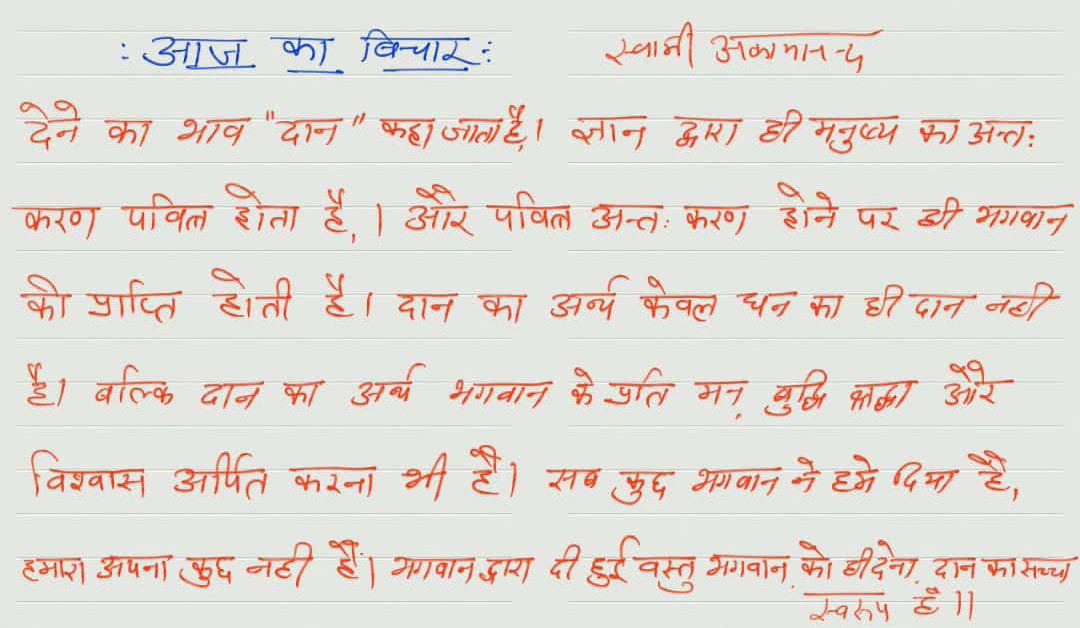 : आज का विचार : स्वामी अकामानन्द
देने का भाव "दान" कहा जाता है,। ज्ञान द्वारा ही मनुष्य का अन्त:
करण पवित्र होता है,। और पवित्र अन्त: करण होने पर ही भगवान
की प्राप्ति होती है। दान का अर्थ केवल धन का ही दान नही
है। बल्कि दान का अर्थ भगवान के प्रति मन, बुद्धि श्रद्धा और
विश्वास अर्पित करना भी है। सब कुछ भगवान ने हमे दिया है,
हमारा अपना कुछ नही है। भगवान द्वारा दी हुई वस्तु भगवान को ही देना, दान का सच्चा
स्वरूप है।।